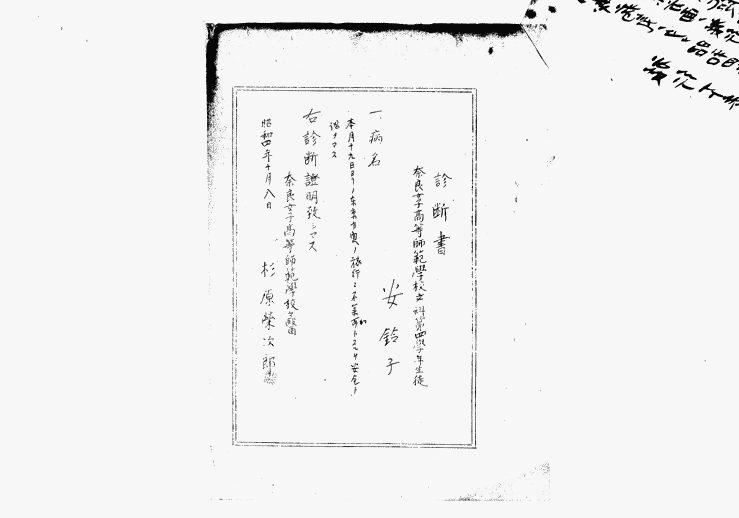 診断書
奈良女子高等師範學校文科第四學年生徒
安鈴子
一、病名
本月十九日ヨリノ東京方面ノ旅行ニ不参加トスルヲ安全ト
認メマス
右診断證明致シマス
奈良女子高等師範學校々醫
昭和四年十月八日
杉原榮次郎